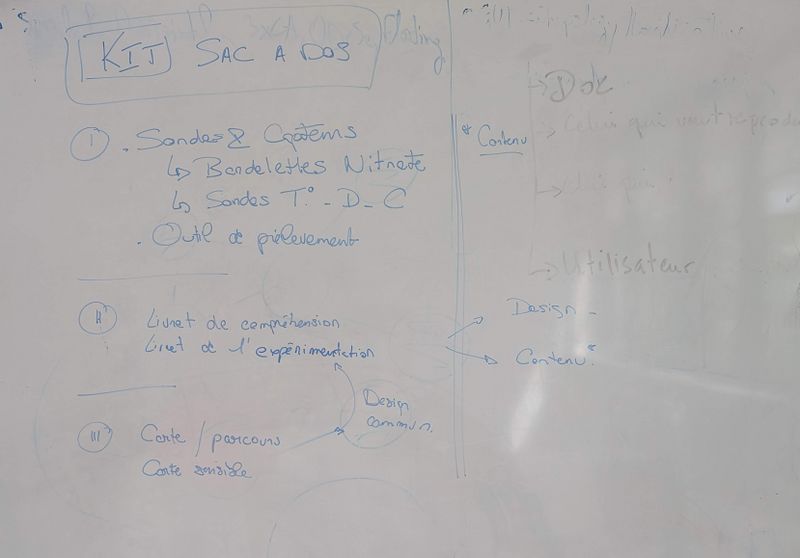 KIT SAC A DOS
I . Sondes & Capteurs
↳ Bandelettes Nitrate
↳ Sondes T.° - D - C
. Outil de prélèvement
II Livret de compréhension
Livret de l'expérimentation
III Carte / parcours
Carte sensible
Design
commun.
* Contenu
→ Design -
→ Contenu.*
→ Dok
→ Celui qui veut reprodu
→ Utilisateur